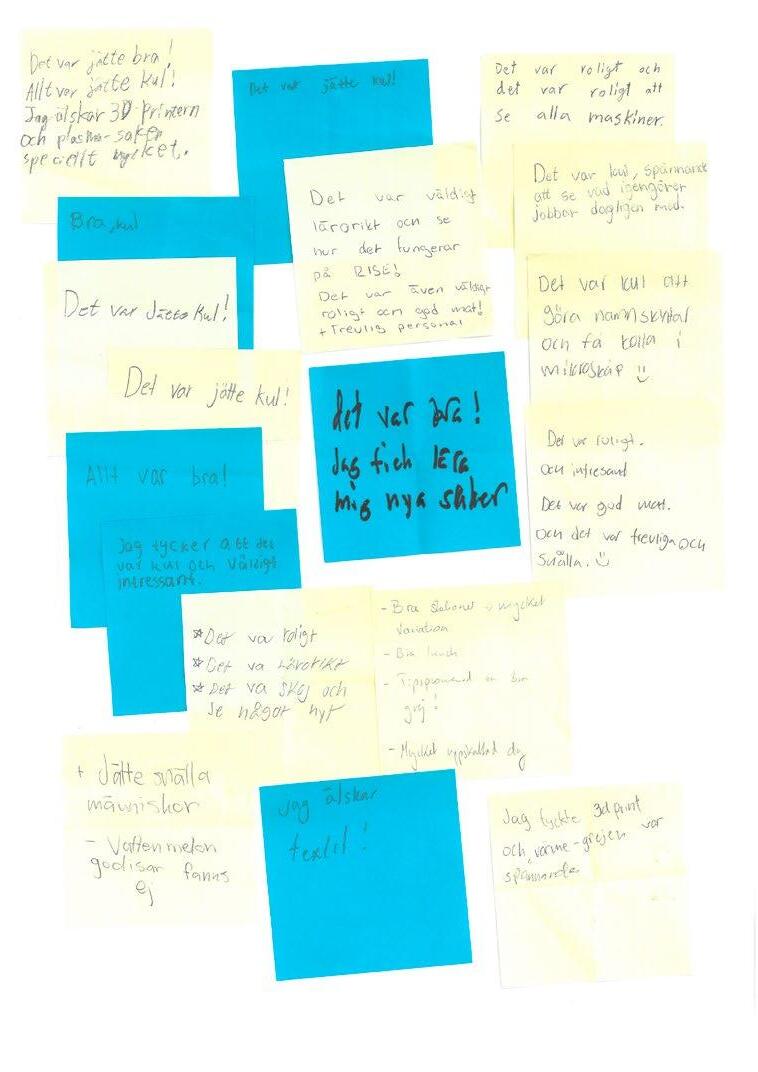 Det var jätte bra!
Allt var jätte kul!
Jag älskar 3D-printern
och plasma-saken
speciellt mycket.
Det var jätte kul!
Det var roligt och
det var roligt att
se alla maskiner.
Bra, kul
Det var väldigt
lärorikt och se
hur det fungerar
på RISE!
Det var även väldigt
roligt och god mat!
+ Trevlig personal
Det var kul, spännande
att se vad igengörer
jobbar dagligen med.
Det var Jätte Kul!
Det var kul att
göra namnskyltar
och få kolla i
mikroskåp
Det var jätte kul!
det var bra!
Jag fick lära
mig nya saker
Det var roligt.
och intresant
Det var god mat.
och det var trevliga och
Snälla.
Allt var bra!
Jag tycker att det
var kul och väldigt
intressant.
Det va roligt
Det va lärorikt
Det va skoj och
se något nyt
- Bra stationer mycket
variation
- Bra lunch
- Tipspromenad en bra
grej!
- Mycket uppskattad dag
+ Jätte snälla
människor
- Vattenmelon
godisar fanns
ej
Jag älskar
textil!
Jag tyckte 3d print
och värme-grejen var
spännande